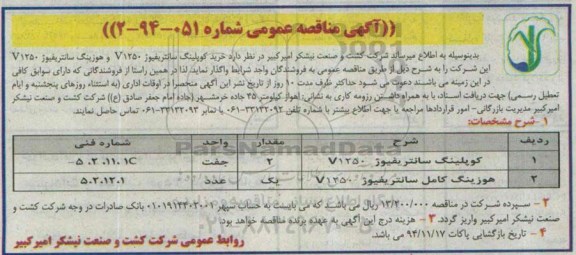 ((آگهی مناقصه عمومی شماره ۰۵۱-۹۴-۲))
بدینوسیله به اطلاع میرساند شرکت کشت و صنعت نیشکر امیرکبیر در نظر دارد خرید کوپلینگ سانتریفیوژ V۱۲۵۰ و هوزینگ سانتریفیوژ V۱۲۵۰
این شرکت را به شرح ذیل از طریق مناقصه عمومی به فروشندگان واجد شرایط واگذار نماید. لذا در همین راستا از فروشندگانی که دارای سوابق کافی
در این زمینه می باشند دعوت می شود حداکثر ظرف مدت ۱۰ روز از تاریخ نشر این آگهی منحصراً در اوقات اداری (به استثناء روزهای پنجشنبه و ایام
تعطیل رسمی) جهت دریافت اسناد، با به همراه داشتن رزومه کاری به نشانی: اهواز کیلومتر ۴۵ جاده خرمشهر (جاده امام جعفر صادق (ع)) شرکت کشت و صنعت نیشکر
امیرکبیر مدیریت بازرگانی- امور قراردادها مراجعه یا جهت اطلاع بیشتر با شماره تلفن ۳۳۱۳۲۰۹۲-۰۶۱ یا نمابر ۳۳۱۳۲۰۹۳-۰۶۱ تماس حاصل نمایند.
۱- شرح مشخصات:
ردیف شرح مقدار واحد شماره فنی
۱ کوپلینگ سانتریفیوژ V۱۲۵۰ ۲ جفت ۵.۲.۱۱.۱C-
۲ هوزینگ کامل سانتریفیوژ V۱۲۵۰ یک عدد ۵.۲.۱۲.۱
۲- سپرده شرکت در مناقصه ۱۳/۲۰۰/۰۰۰ ریال می باشد که می بایست به حساب سپهر ۰۱۰۱۹۱۳۴۰۲۰۰۱ بانک صادرات در وجه شرکت کشت و
صنعت نیشکر امیرکبیر واریز گردد. ۳- هزینه درج این آگهی به عهده برنده مناقصه خواهد بود.
۴- تاریخ بازگشایی پاکات ۹۴/۱۱/۱۷ می باشد.
روابط عمومی شرکت کشت و صنعت نیشکر امیرکبیر